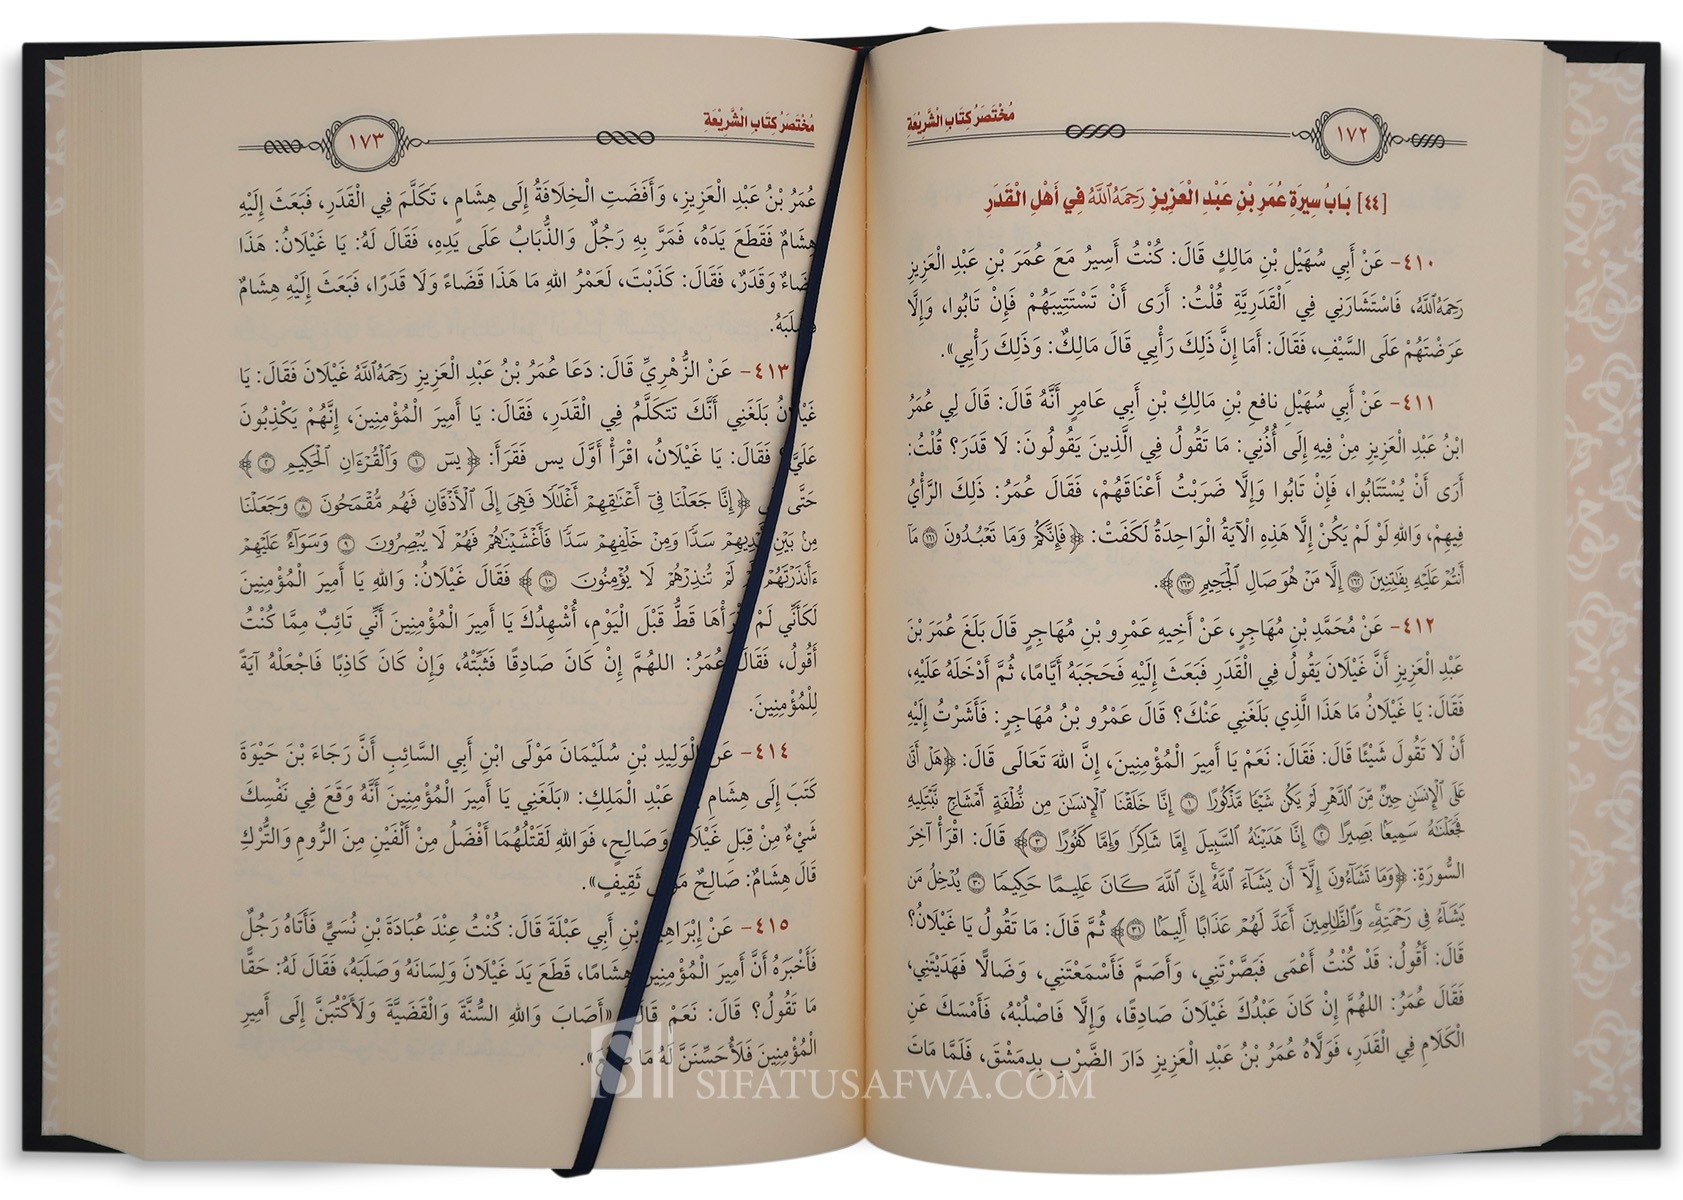 مُخْتَصَرُ كِتَابِ الشَّرِيْعَةِ
١٧٢
[٤٤] بَابُ سِيرَةِ عُمَرِ بْنِ عَبْدِ الْعَزِيزِ رَحِمَهُ اللَّهُ فِي أَهْلِ الْقَدَرِ
٤١٠- عَنْ أَبِي سُهَيْلِ بْنِ مَالِكٍ قَالَ: كُنْتُ أَسِيرُ مَعَ عُمَرَ بْنِ عَبْدِ الْعَزِيزِ
رَحِمَهُ اللَّهُ، فَاسْتَشَارَنِي فِي الْقَدَرِيَّةِ قُلْتُ: أَرَى أَنْ تَسْتَتِيبَهُمْ فَإِنْ تَابُوا، وَإِلَّا
عَرَضْتَهُمْ عَلَى السَّيْفِ، فَقَالَ: أَمَا إِنَّ ذَلِكَ رَأْيِي قَالَ مَالِكٌ: وَذَلِكَ رَأْيِي».
٤١١- عَنْ أَبِي سُهَيْلِ نافِعِ بْنِ مَالِكِ بْنِ أَبِي عَامِرٍ أَنَّهُ قَالَ: قَالَ لِي عُمَرُ
ابْنُ عَبْدِ الْعَزِيزِ مِنْ فِيهِ إِلَى أُذُنِي: مَا تَقُولُ فِي الَّذِينَ يَقُولُونَ: لَا قَدَرَ؟ قُلْتُ:
أَرَى أَنْ يُسْتَتَابُوا، فَإِنْ تَابُوا وَإِلَّا ضَرَبْتُ أَعْنَاقَهُمْ، فَقَالَ عُمَرُ: ذَلِكَ الرَّأْيُ
فِيهِمْ، وَاللهِ لَوْ لَمْ يَكُنْ إِلَّا هَذِهِ الْآيَةُ الْوَاحِدَةُ لَكَفَتْ: ﴿فَإِنَّكُمْ وَمَا تَعْبُدُونَ ١٦١ مَآ
أَنتُمْ عَلَيْهِ بِفَٰتِنِينَ ١٦٢ إِلَّا مَنْ هُوَ صَالِ الْجَحِيمِ ١٦٣﴾.
٤١٢- عَنْ مُحَمَّدِ بْنِ مُهَاجِرٍ، عَنْ أَخِيهِ عَمْرِو بْنِ مُهَاجِرٍ قَالَ بَلَغَ عُمَرَ بْنَ
عَبْدِ الْعَزِيزِ أَنَّ غَيْلَانَ يَقُولُ فِي الْقَدَرِ فَبَعَثَ إِلَيْهِ فَحَجَبَهُ أَيَّامًا، ثُمَّ أَدْخَلَهُ عَلَيْهِ،
فَقَالَ: يَا غَيْلَانُ مَا هَذَا الَّذِي بَلَغَنِي عَنْكَ؟ قَالَ عَمْرُو بْنُ مُهَاجِرٍ: فَأَشَرْتُ إِلَيْهِ
أَنْ لَا تَقُولَ شَيْئًا قَالَ: فَقَالَ: نَعَمْ يَا أَمِيرَ الْمُؤْمِنِينَ، إِنَّ اللهَ تَعَالَى قَالَ: ﴿هَلْ أَتَىٰ
عَلَى الْإِنسَٰنِ حِينٌ مِّنَ الدَّهْرِ لَمْ يَكُن شَيْـًٔا مَّذْكُورًا ١ إِنَّا خَلَقْنَا الْإِنسَٰنَ مِن نُّطْفَةٍ أَمْشَاجٍ نَّبْتَلِيهِ
فَجَعَلْنَٰهُ سَمِيعًۢا بَصِيرًا ٢ إِنَّا هَدَيْنَٰهُ السَّبِيلَ إِمَّا شَاكِرًا وَإِمَّا كَفُورًا ٣﴾ قَالَ: اقْرَأْ آخِرَ
السُّورَةِ: ﴿وَمَا تَشَآءُونَ إِلَّآ أَن يَشَآءَ اللَّهُ إِنَّ اللَّهَ كَانَ عَلِيمًا حَكِيمًا ٣٠ يُدْخِلُ مَن
يَشَآءُ فِي رَحْمَتِهِ وَالظَّٰلِمِينَ أَعَدَّ لَهُمْ عَذَابًا أَلِيمًۢا ٣١﴾ ثُمَّ قَالَ: مَا تَقُولُ يَا غَيْلَانُ؟
قَالَ: أَقُولُ: قَدْ كُنْتُ أَعْمَى فَبَصَّرْتَنِي، وَأَصَمَّ فَأَسْمَعْتَنِي، وَضَالًّا فَهَدَيْتَنِي،
فَقَالَ عُمَرُ: اللهُمَّ إِنْ كَانَ عَبْدُكَ غَيْلَانَ صَادِقًا، وَإِلَّا فَاصْلُبْهُ، فَأَمْسَكَ عَنِ
الْكَلَامِ فِي الْقَدَرِ، فَوَلَّاهُ عُمَرُ بْنُ عَبْدِ الْعَزِيزِ دَارَ الضَّرْبِ بِدِمَشْقَ، فَلَمَّا مَاتَ
مُخْتَصَرُ كِتَابِ الشَّرِيْعَةِ
١٧٣
عُمَرُ بْنُ عَبْدِ الْعَزِيزِ، وَأَفَضَتِ الْخِلَافَةُ إِلَى هِشَامٍ، تَكَلَّمَ فِي الْقَدَرِ، فَبَعَثَ إِلَيْهِ
هِشَامٌ فَقَطَعَ يَدَهُ، فَمَرَّ بِهِ رَجُلٌ وَالذُّبَابُ عَلَى يَدِهِ، فَقَالَ لَهُ: يَا غَيْلَانُ: هَذَا
قَضَاءٌ وَقَدَرٌ، فَقَالَ: كَذَبْتَ، لَعَمْرُ اللهِ مَا هَذَا قَضَاءً وَلَا قَدَرًا، فَبَعَثَ إِلَيْهِ هِشَامٌ
فَصَلَبَهُ.
٤١٣- عَنْ الزُّهْرِيِّ قَالَ: دَعَا عُمَرُ بْنُ عَبْدِ الْعَزِيزِ رَحِمَهُ اللَّهُ غَيْلَانَ فَقَالَ: يَا
غَيْلَانُ بَلَغَنِي أَنَّكَ تَتَكَلَّمُ فِي الْقَدَرِ، فَقَالَ: يَا أَمِيرَ الْمُؤْمِنِينَ، إِنَّهُمْ يَكْذِبُونَ
عَلَيَّ؟ فَقَالَ: يَا غَيْلَانُ، اقْرَأْ أَوَّلَ يس فَقَرَأَ: ﴿يسٓ ١ وَالْقُرْءَانِ الْحَكِيمِ ٢﴾
حَتَّى أَتَى ﴿إِنَّا جَعَلْنَا فِيٓ أَعْنَٰقِهِمْ أَغْلَٰلًا فَهِيَ إِلَى الْأَذْقَانِ فَهُم مُّقْمَحُونَ ٨ وَجَعَلْنَا
مِنۢ بَيْنِ أَيْدِيهِمْ سَدًّا وَمِنْ خَلْفِهِمْ سَدًّا فَأَغْشَيْنَٰهُمْ فَهُمْ لَا يُبْصِرُونَ ٩ وَسَوَآءٌ عَلَيْهِمْ
ءَأَنذَرْتَهُمْ أَمْ لَمْ تُنذِرْهُمْ لَا يُؤْمِنُونَ ١٠﴾ فَقَالَ غَيْلَانُ: وَاللهِ يَا أَمِيرَ الْمُؤْمِنِينَ
لَكَأَنِّي لَمْ أَقْرَأْهَا قَطُّ قَبْلَ الْيَوْمِ، أُشْهِدُكَ يَا أَمِيرَ الْمُؤْمِنِينَ أَنِّي تَائِبٌ مِمَّا كُنْتُ
أَقُولُ، فَقَالَ عُمَرُ: اللهُمَّ إِنْ كَانَ صَادِقًا فَثَبِّتْهُ، وَإِنْ كَانَ كَاذِبًا فَاجْعَلْهُ آيَةً
لِلْمُؤْمِنِينَ.
٤١٤- عَنِ الْوَلِيدِ بْنِ سُلَيْمَانَ مَوْلَى ابْنِ أَبِي السَّائِبِ أَنَّ رَجَاءَ بْنَ حَيْوَةَ
كَتَبَ إِلَى هِشَامِ بْنِ عَبْدِ الْمَلِكِ: «بَلَغَنِي يَا أَمِيرَ الْمُؤْمِنِينَ أَنَّهُ وَقَعَ فِي نَفْسِكَ
شَيْءٌ مِنْ قِبَلِ غَيْلَانَ وَصَالِحٍ، فَوَاللهِ لَقَتْلُهُمَا أَفْضَلُ مِنْ أَلْفَيْنِ مِنَ الرُّومِ وَالتُّرْكِ
قَالَ هِشَامٌ: صَالِحٌ مَوْلَى ثَقِيفٍ».
٤١٥- عَنْ إِبْرَاهِيمَ بْنِ أَبِي عَبْلَةَ قَالَ: كُنْتُ عِنْدَ عُبَادَةَ بْنِ نُسَيٍّ فَأَتَاهُ رَجُلٌ
فَأَخْبَرَهُ أَنَّ أَمِيرَ الْمُؤْمِنِينَ هِشَامًا، قَطَعَ يَدَ غَيْلَانَ وَلِسَانَهُ وَصَلَبَهُ، فَقَالَ لَهُ: حَقًّا
مَا تَقُولُ؟ قَالَ: نَعَمْ قَالَ: «أَصَابَ وَاللهِ السُّنَّةَ وَالْقَضِيَّةَ وَلَأَكْتُبَنَّ إِلَى أَمِيرِ
الْمُؤْمِنِينَ فَلَأُحَسِّنَنَّ لَهُ مَا صَنَعَ».
SIFATUSAFWA.COM